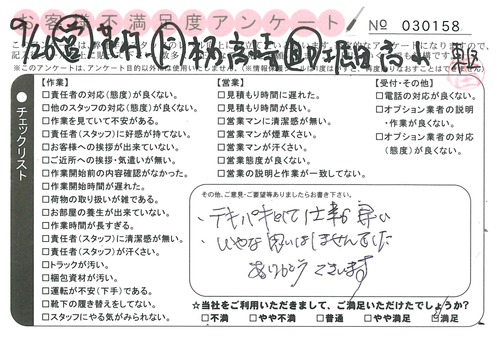 お客様不満足度アンケート
No 030158
9/26
※このアンケートは、アンケート目的以外には使用いたしません。
チェックリスト
【作業】
□責任者の対応(態度)が良くない。
□他のスタッフの対応(態度)が良くない。
□作業を見ていて不安がある。
□責任者(スタッフ)に好感が持てない。
□お客様への挨拶が出来ていない。
□ご近所への挨拶・気遣いが無い。
□作業開始前の内容確認がなかった。
□作業開始時間が遅れた。
□荷物の取り扱いが雑である。
□お部屋の養生が出来ていない。
□作業時間が長すぎる。
□責任者(スタッフ)に清潔感が無い。
□責任者(スタッフ)が汗くさい。
□トラックが汚い。
□梱包資材が汚い。
□運転が不安(下手)である。
□靴下の履き替えをしてない。
□スタッフにやる気がみられない。
【営業】
□見積もり時間に遅れた。
□見積もり時間が長い。
□営業マンに清潔感が無い。
□営業マンが煙草くさい。
□営業マンが汗くさい。
□営業態度が良くない。
□営業の説明と作業が一致してない。
【受付・その他】
□電話の対応が良くない。
□オプション業者の説明・作業が良くない。
□オプション業者の対応(態度)が良くない。
その他、ご意見・ご要望等ありましたらお書き下さい。
・テキパキとして仕事が早い
・いやな思いはしませんでした
ありがとうございます
☆当社をご利用いただきまして、ご満足いただけたでしょうか?
□不満 □やや不満 □普通 □やや満足 □満足